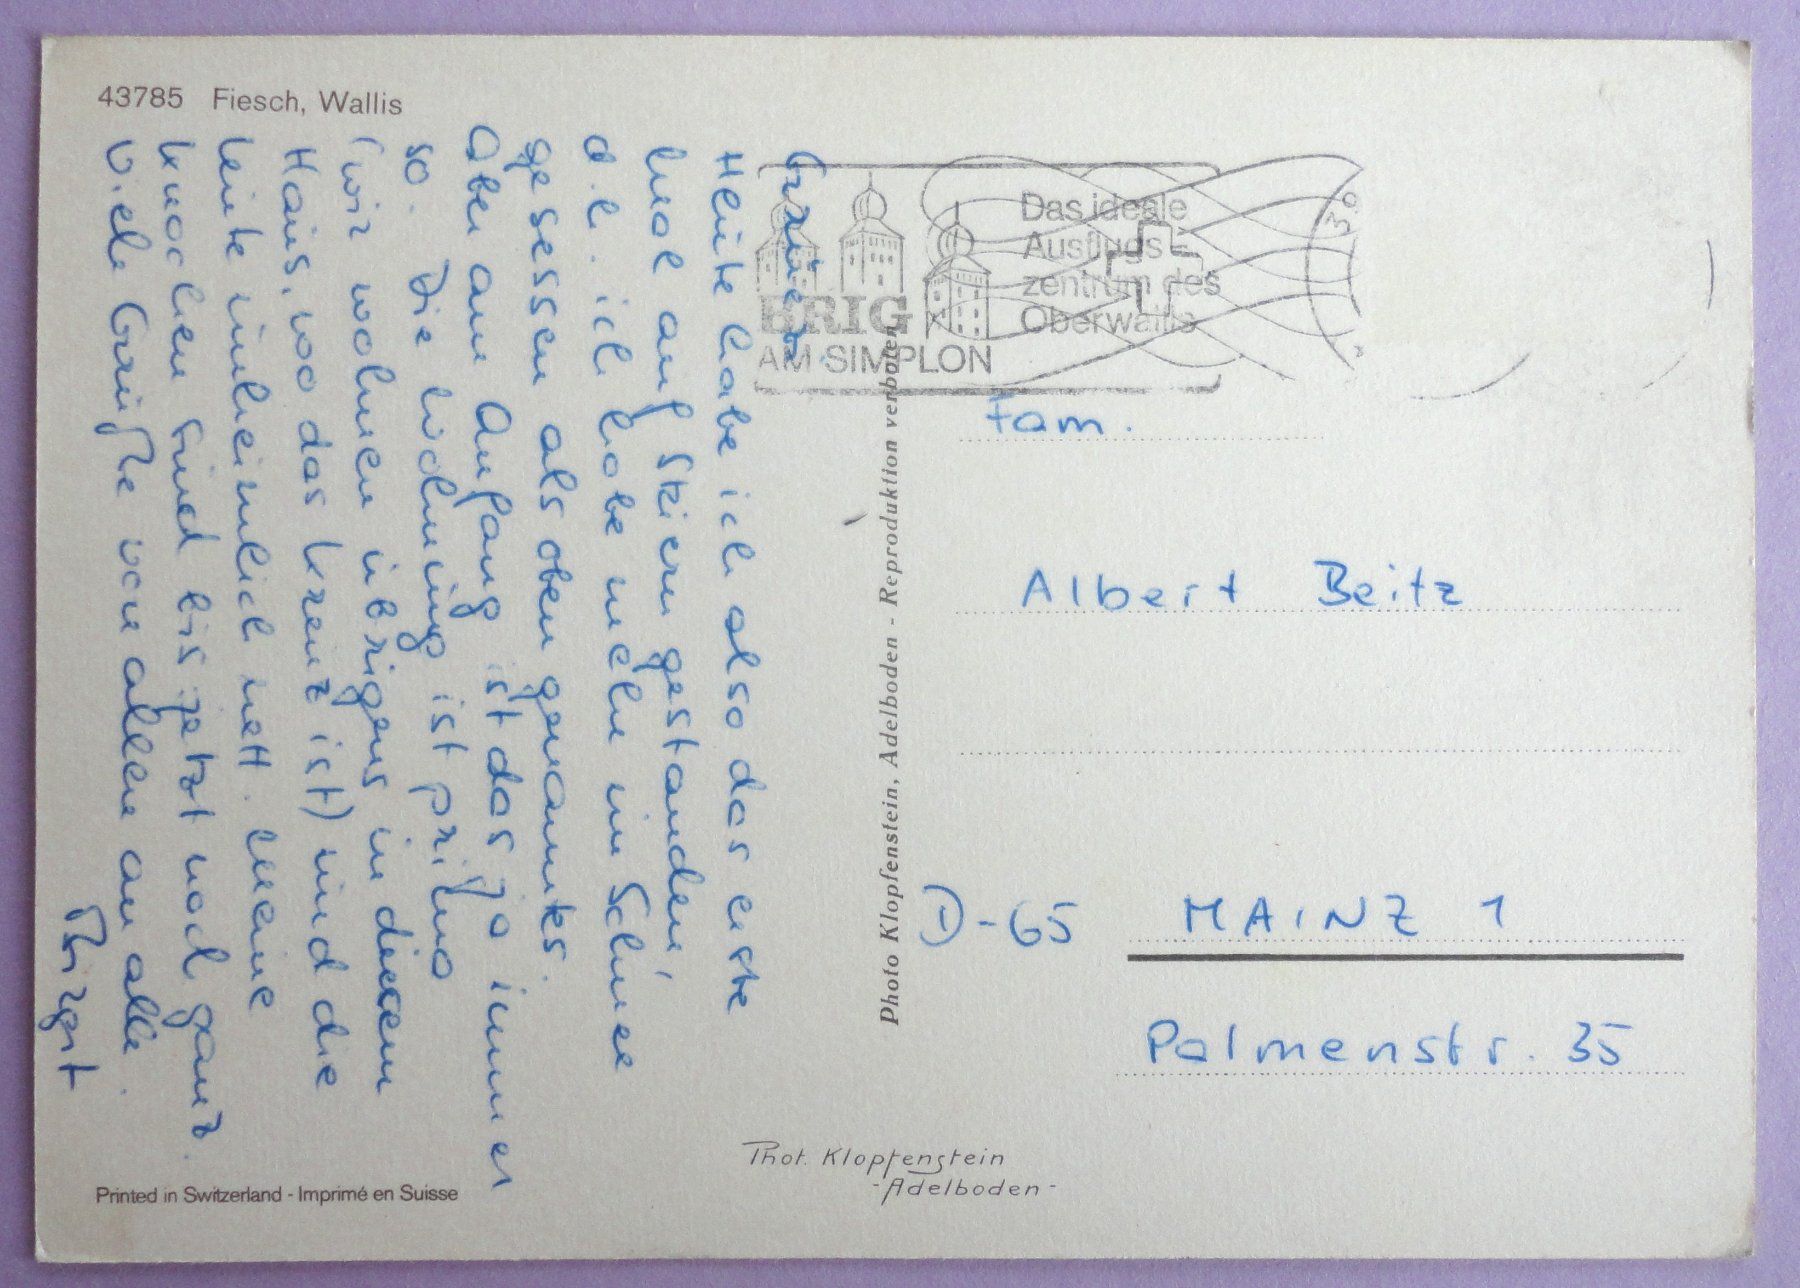 43785 Fiesch, Wallis
Heute habe ich also das erste
Mal auf Skiern gestanden,
d.h. ich habe mehr im Schnee
gesessen als oben
Aber am Anfang ist das ja immer
so. Die Wohnung ist prima
(wir wohnen übrigens in diesem
Haus, wo das Kreuz ist) und die
Leute unheimlich nett. Meine
Knochen sind bis jetzt noch ganz.
Viele Grüße von allen an alle.
Birgit
Printed in Switzerland - Imprimé en Suisse
BRIG
AM SIMPLON
Das ideale
Ausflugs-
zentrum des
Oberwallis
Photo Klopfenstein, Adelboden - Reproduktion verboten
Fam.
Albert Beitz
D-65 MAINZ 1
Palmenstr. 35
Phot. Klopfenstein
-Adelboden-